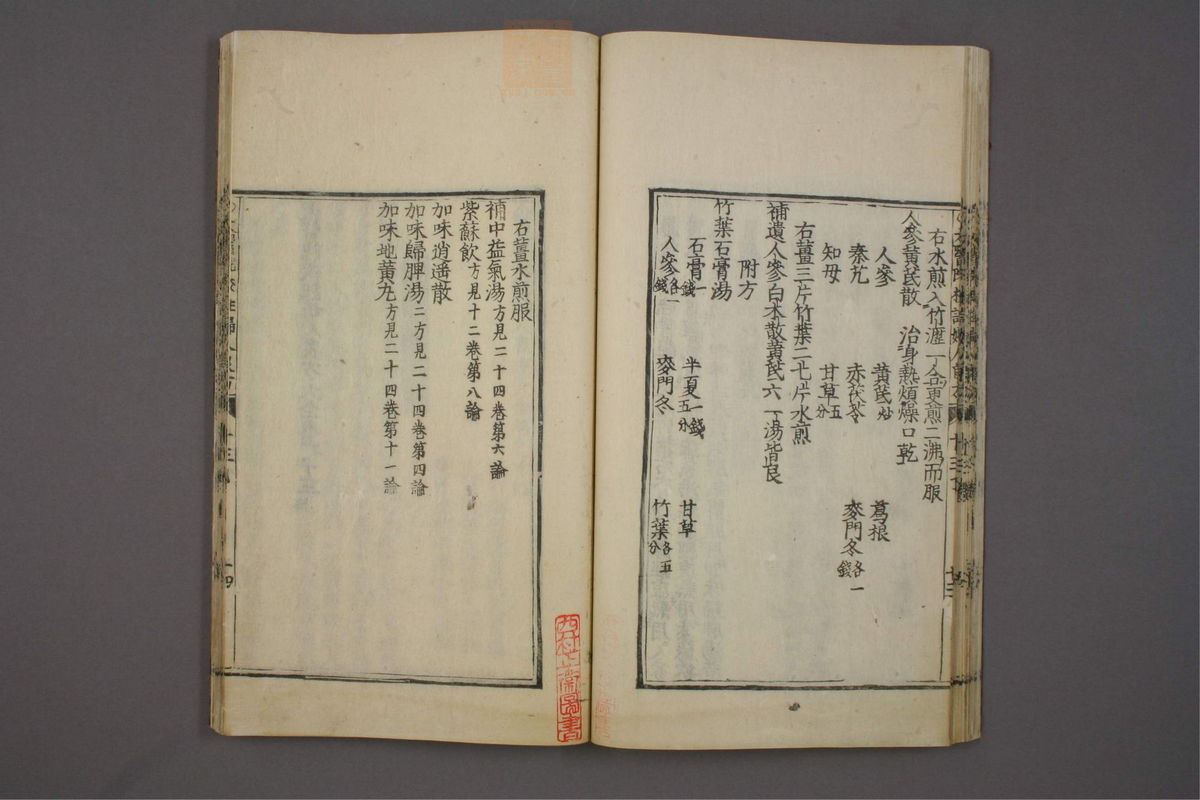 右水煎入竹瀝一合更煎二沸而服
人參黃芪散　治身熱煩燥口乾
人參　黃芪炒　葛根
秦艽　赤茯苓　麥門冬各一錢
知母　甘草五分
右薑三片竹葉二七片水煎
補遺人參白朮散黃芪六一湯皆良
附方
竹葉石膏湯
石膏一錢　半夏一錢五分　甘草
人參各一錢　麥門冬　竹葉各五分
右薑水煎服
補中益氣湯方見二十四卷第六論
紫蘇飲方見十二卷第八論
加味逍遥散
加味歸脾湯二方見二十四卷第四論
加味地黃丸方見二十四卷第十一論
十三
十四